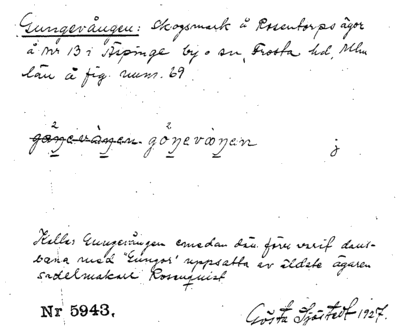 Gungevången: Skogsmark å Rosentorps ägor
å Nr 13 i Äspinge by o sn, Frosta hd, Mlm
län å fig. num. 69
gåŋevàŋen gòŋevàŋen
2 2
j
Kallas Gungevången emedan där förr varit dans-
bana med "Gungor" uppsatta av äldste ägaren
sadelmakare Rosenquist
Nr 5943.
Gösta Sjöstedt 1927.